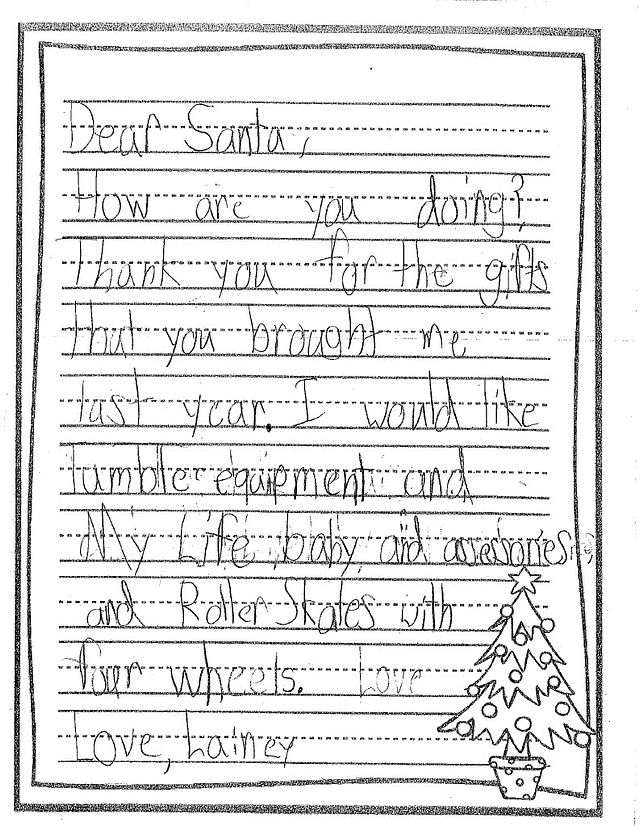 Dear Santa,
How are you doing?
Thank you for the gifts
that you brought me
last year. I would like
tumble equipment and
My Life baby, and assessories
and Roller Skates with
four wheels. Love
Love, Lainey